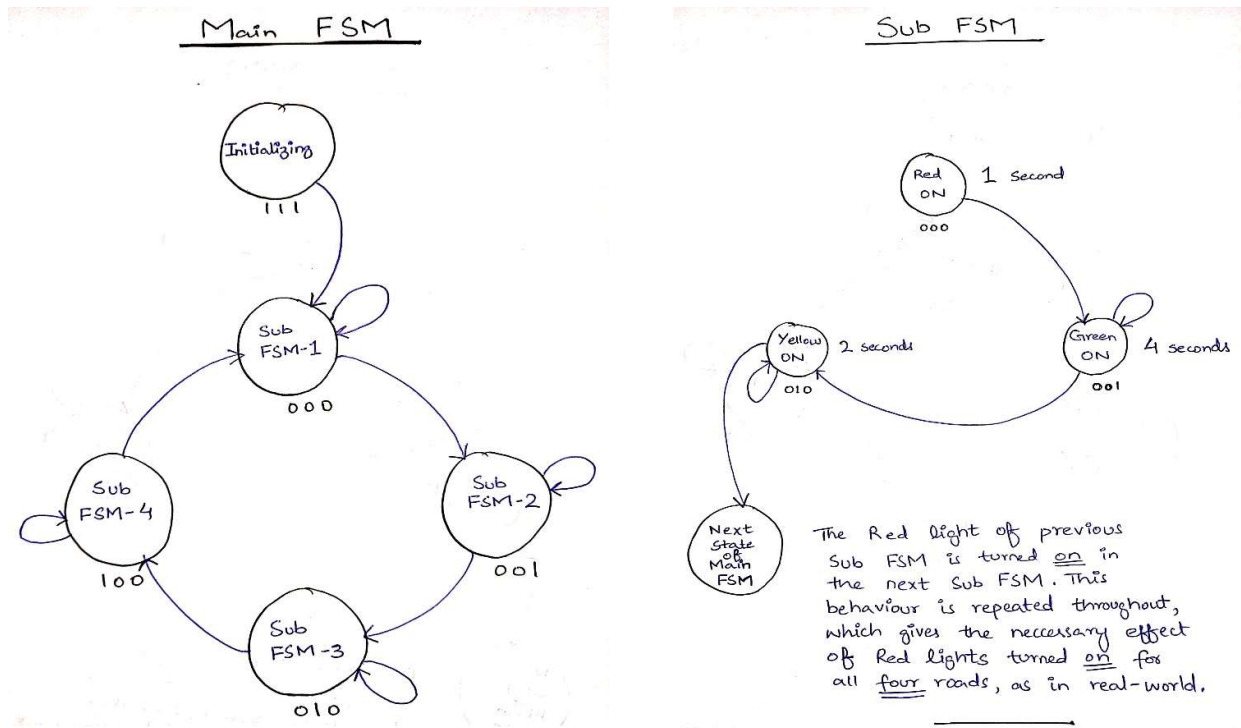 Main FSM
Initializing
111
Sub
FSM-1
000
Sub
FSM-2
001
Sub
FSM-3
010
Sub
FSM-4
100
Sub FSM
Red
ON
1 second
000
Green
ON
4 seconds
001
Yellow
ON
2 seconds
010
Next
State
of
Main
FSM
The Red light of previous
Sub FSM is turned on in
the next Sub FSM. This
behaviour is repeated throughout,
which gives the neccessary effect
of Red lights turned on for
all four roads, as in real-world.